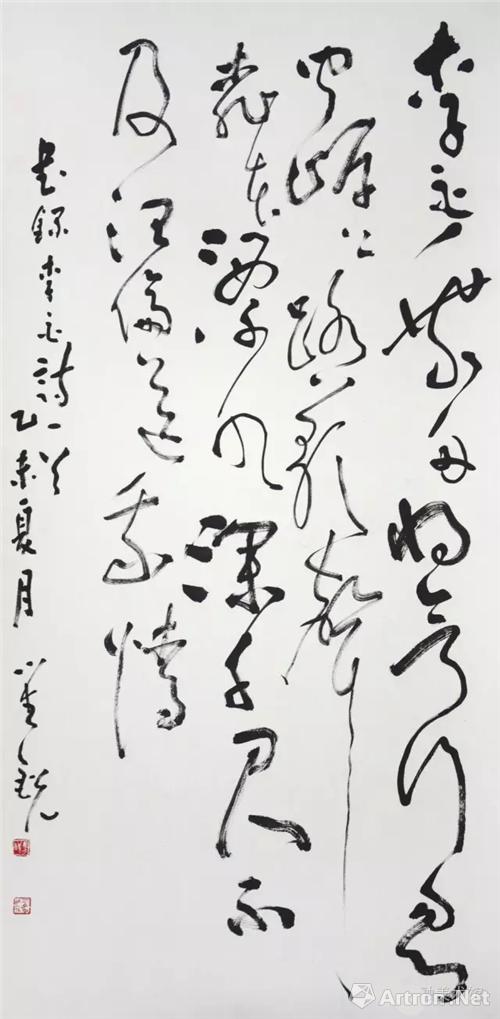 李白乘舟將欲行忽
聞岸上踏歌聲
桃花潭水深千尺不
及汪倫送我情
錄李白詩一首乙未夏月
Artron.Net